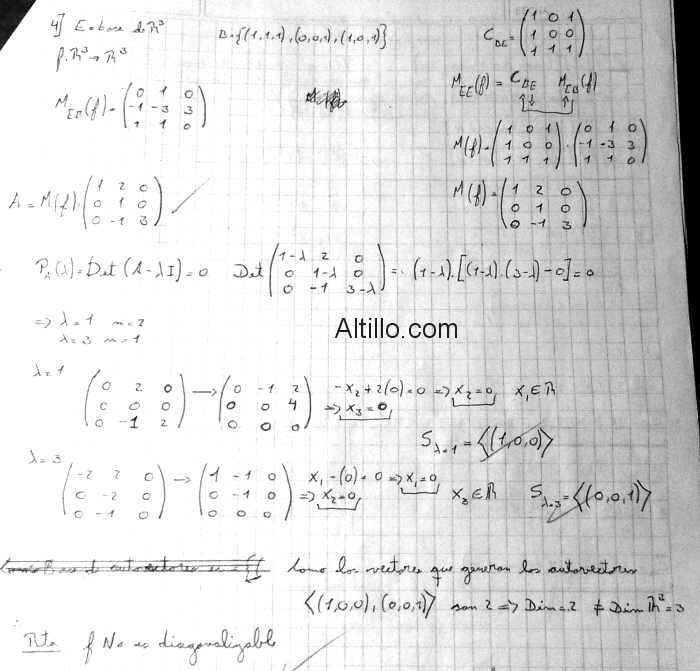 4] E base de ℝ³ B={(1,1,1),(0,0,1),(1,0,1)} C_BE = (1 0 1 / 1 0 0 / 1 1 1)
f: ℝ³→ℝ³
M_EB(f) = (0 1 0 / -1 -3 3 / 1 1 0) M_EE(f) = C_BE M_EB(f)
M(f) = (1 0 1 / 1 0 0 / 1 1 1) . (0 1 0 / -1 -3 3 / 1 1 0)
A = M(f) = (1 2 0 / 0 1 0 / 0 -1 3) M(f) = (1 2 0 / 0 1 0 / 0 -1 3)
P_A(λ) = Det (A-λI) = 0 Det (1-λ 2 0 / 0 1-λ 0 / 0 -1 3-λ) = (1-λ).[(1-λ).(3-λ)-0] = 0
=> λ=1 m=2
λ=3 m=1
Altillo.com
λ=1
(0 2 0 / 0 0 0 / 0 -1 2) → (0 -1 2 / 0 0 4 / 0 0 0) -x₂+2(0)=0 => x₂=0 x₁∈ℝ
=> x₃=0
S_λ=1 = <(1,0,0)>
λ=3
(-2 2 0 / 0 -2 0 / 0 -1 0) → (1 -1 0 / 0 -1 0 / 0 0 0) x₁-(0)=0 => x₁=0
=> x₂=0 x₃∈ℝ S_λ=3 = <(0,0,1)>
Como los vectores que generan los autovectores
<(1,0,0),(0,0,1)> son 2 => Dim=2 ≠ Dim ℝ³=3
Rta f No es diagonalizable